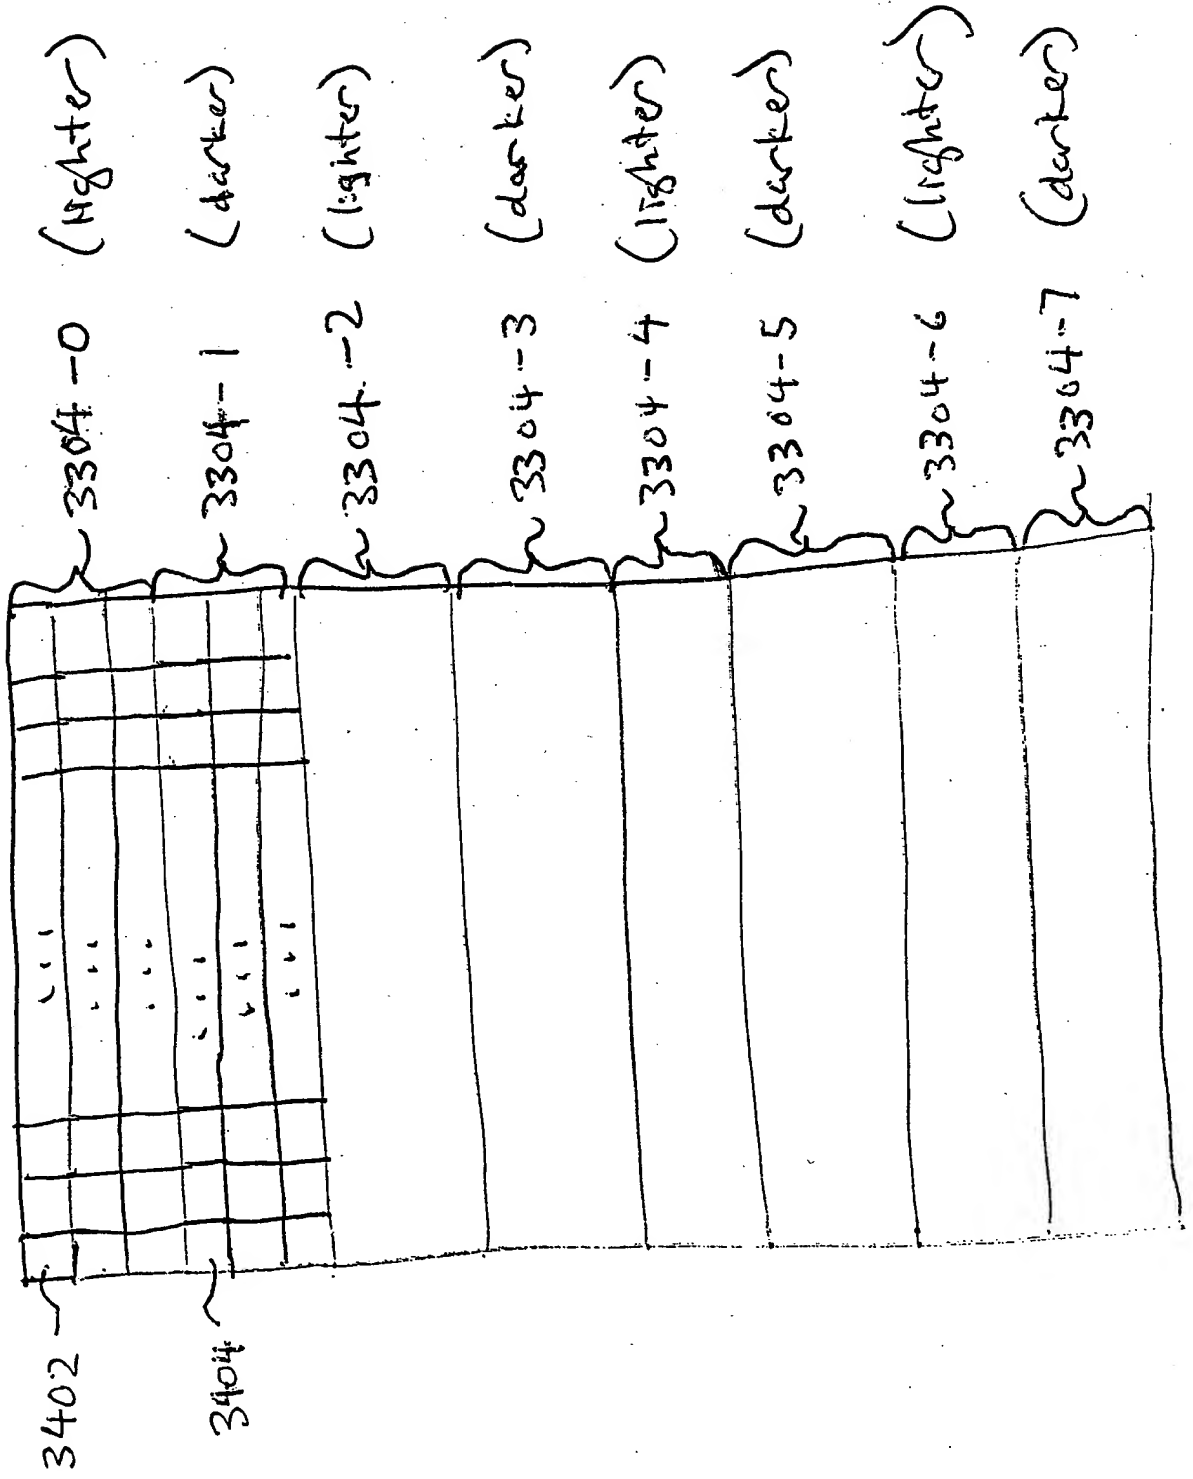 3304-0 (lighter)
3304-1 (darker)
3304-2 (lighter)
3304-3 (darker)
3304-4 (lighter)
3304-5 (darker)
3304-6 (lighter)
3304-7 (darker)
3402
3404